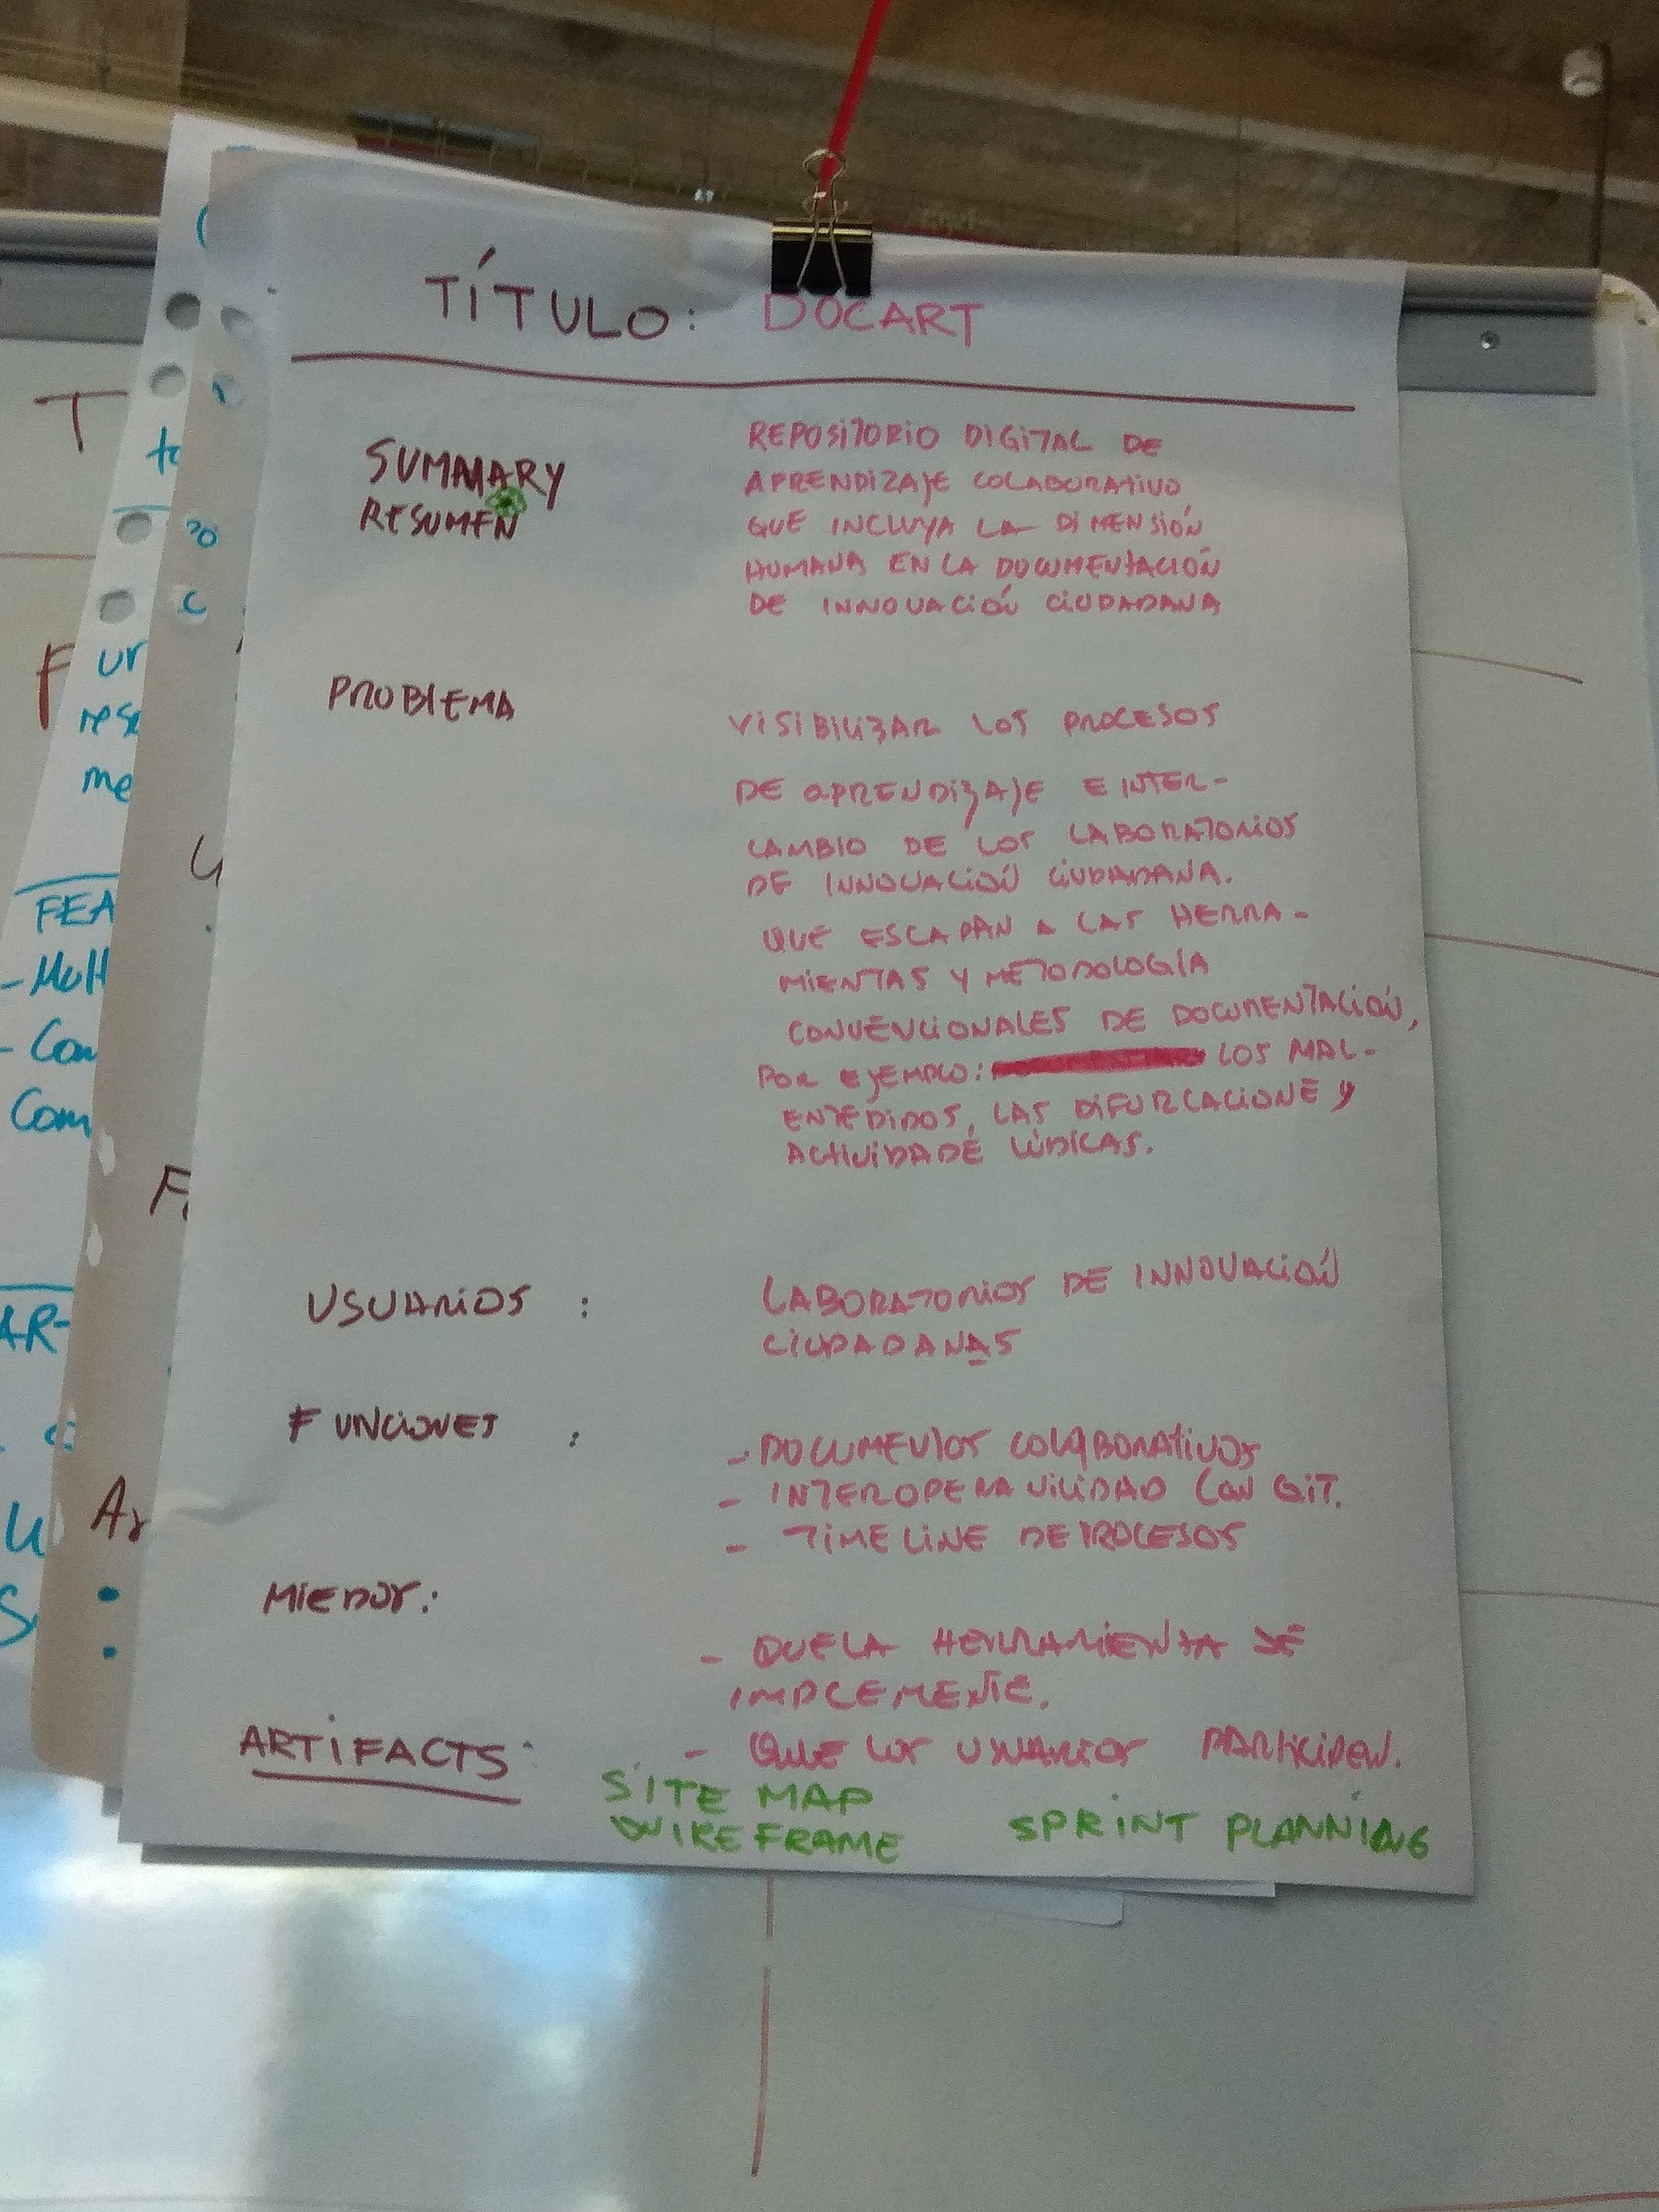 TÍTULO: DOCART
SUMMARY
RESUMEN
REPOSITORIO DIGITAL DE
APRENDIZAJE COLABORATIVO
QUE INCLUYA LA DIMENSIÓN
HUMANA EN LA DOCUMENTACIÓN
DE INNOVACIÓN CIUDADANA
PROBLEMA
VISIBILIZAR LOS PROCESOS
DE APRENDIZAJE E INTER-
CAMBIO DE LOS LABORATORIOS
DE INNOVACIÓN CIUDADANA.
QUE ESCAPAN A LAS HERRA-
MIENTAS Y METODOLOGÍA
CONVENCIONALES DE DOCUMENTACIÓN,
POR EJEMPLO: LOS MAL-
ENTEDIDOS, LAS DIFURCACIONE Y
ACTIVIDADE LÚDICAS.
USUARIOS :
LABORATORIOS DE INNOVACIÓN
CIUDADANAS
FUNCIONES :
- DOCUMENTOS COLABORATIVOS
- INTEROPERAVILIDAD CON GIT.
- TIMELINE DE PROCESOS
MIEDOS:
- QUE LA HERRAMIENTA SE
IMPLEMENTE.
- QUE LOS USUARIOS PARTICIPEN.
ARTIFACTS:
SITE MAP
WIREFRAME
SPRINT PLANNING
T
to
30
C
F
ur
me
U
FEA
- Mult
- Com
Com
AR-
U